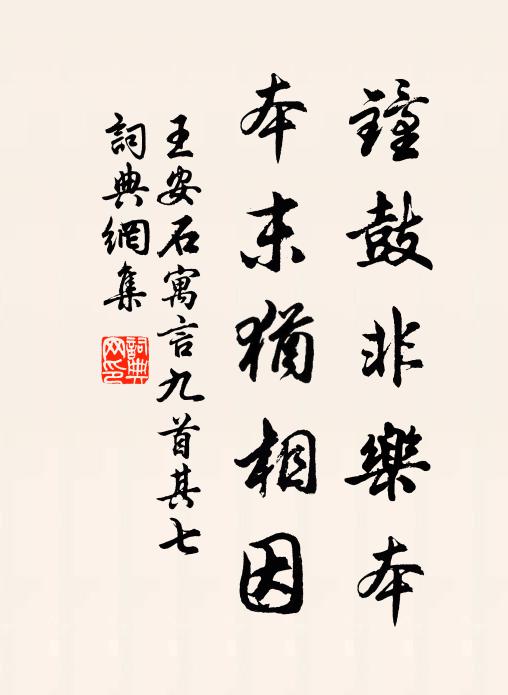 鐘鼓非樂本
本末猶相因
王安石寓言九首其七
詞典網集
詞典
网印